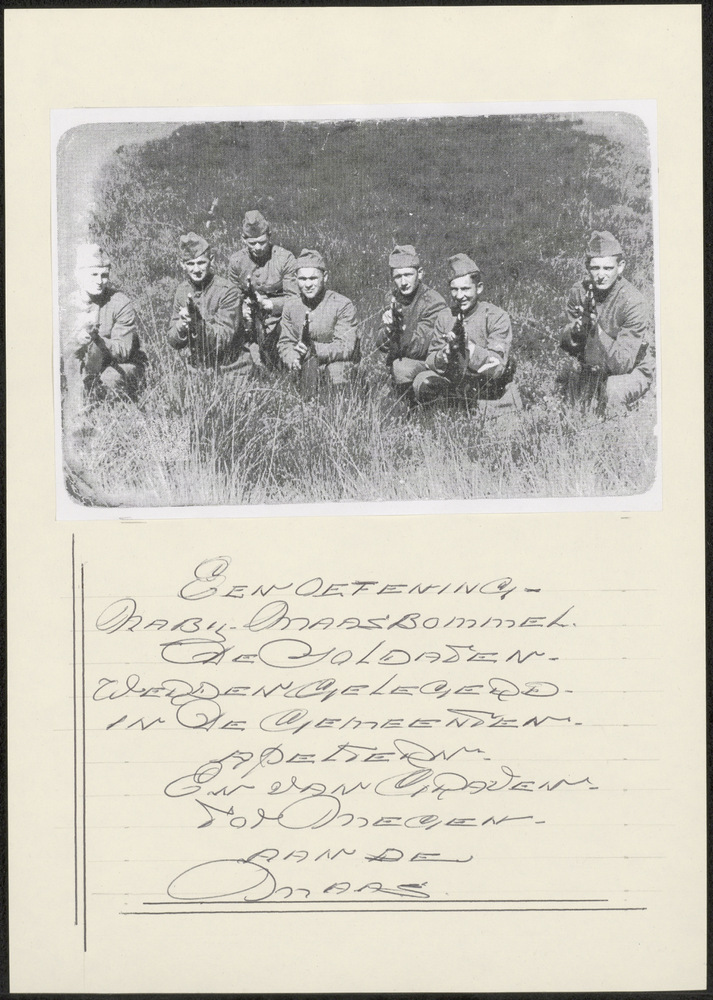 EEN OEFENING-
NABIJ- MAASBOMMEL.
DE SOLDATEN-
WERDEN GELEGERD-
IN DE GEMEENTEN-
APELTERN-
EN VAN GRAVEN-
TOT MEGEN-
AAN DE
MAAS